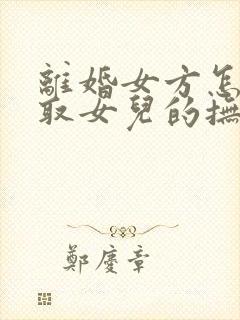 離婚女方怎
取女兒的撫
鄭慶章